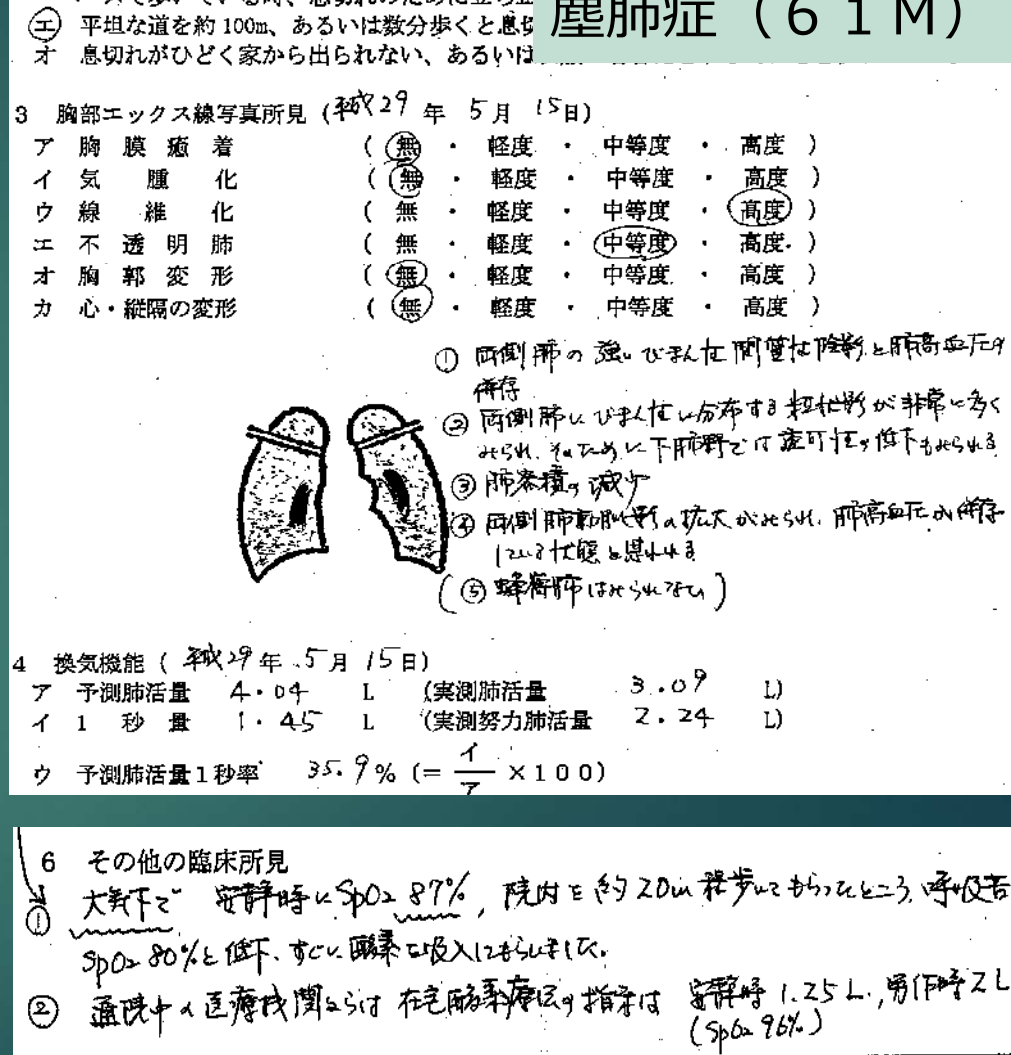 塵肺症（６１M）
エ 平坦な道を約100m、あるいは数分歩くと息切
オ 息切れがひどく家から出られない、あるいは
3 胸部エックス線写真所見（平成29年 5月 15日）
ア 胸膜癒着 （ 無 ・ 軽度 ・ 中等度 ・ 高度 ）
イ 気腫化 （ 無 ・ 軽度 ・ 中等度 ・ 高度 ）
ウ 線維化 （ 無 ・ 軽度 ・ 中等度 ・ 高度 ）
エ 不透明肺 （ 無 ・ 軽度 ・ 中等度 ・ 高度 ）
オ 胸郭変形 （ 無 ・ 軽度 ・ 中等度 ・ 高度 ）
カ 心・縦隔の変形 （ 無 ・ 軽度 ・ 中等度 ・ 高度 ）
① 両側肺の強いびまん性間質性陰影と肺高血圧の
併存
② 両側肺にびまん性に分布する粒状影が非常に多く
みられ、そのために下肺野では透可性の低下もみられる
③ 肺容積の減少
④ 両側肺動脈影の拡大がみられ、肺高血圧が併存
している状態と思われる
（⑤ 蜂巣肺はみられない）
4 換気機能（ 平成29年 5月 15日）
ア 予測肺活量 4.04 L （実測肺活量 3.09 L）
イ 1秒量 1.45 L （実測努力肺活量 2.24 L）
ウ 予測肺活量1秒率 35.9%（＝ イ/ア ×100）
6 その他の臨床所見
① 大気下で 安静時にSpO2 87%, 院内を約20m 程歩いてもらったところ、呼吸苦
SpO2 80%と低下、すぐに酸素を吸入してもらいました。
② 通院中の医療機関からは 在宅酸素療法の指示は 安静時 1.25L, 労作時 2L
(SpO2 96%)